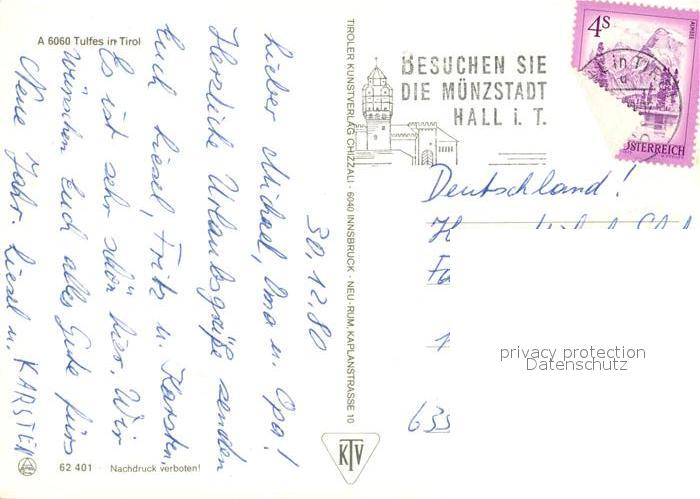 A 6060 Tulfes in Tirol
30.12.80
Lieber Michael, Oma u. Opa!
Herzliche Urlaubsgrüße senden
Euch Liesel, Fritz u. Karsten.
Es ist sehr schön hier. Wir
wünschen Euch alles Gute fürs
Neue Jahr. Liesel u. KARSTEN
62 401 · Nachdruck verboten!
TIROLER KUNSTVERLAG CHIZZALI · 6040 INNSBRUCK · NEU-RUM, KAPLANSTRASSE 10
KTV
BESUCHEN SIE
DIE MÜNZSTADT
HALL i. T.
4S
ALMSEE
ÖSTERREICH
Deutschland!
privacy protection
Datenschutz